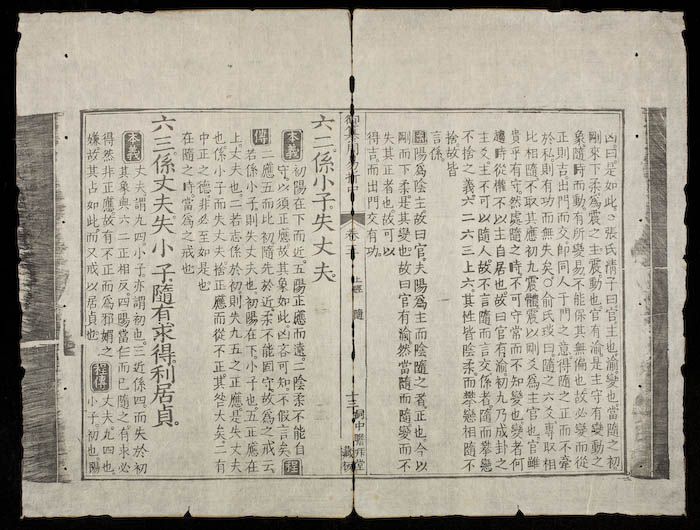 凶曰貞是如此○張氏清子曰官主也渝變也當隨之初
剛來下柔爲震之主震動也官有渝是主守有變動之
象隨時而動有所變易不能保其無偏也故必變而從
正則吉出門而交即同人于門之意得隨之正而不牽
於私則有功而無失矣○俞氏琰曰隨之六爻專取相
比相隨不取其應初九震體震以剛爻爲主官也官雖
貴乎有守然處隨之時不可守常而不知變也變者何
趨時從權不以主自居也故曰官有渝初九乃成卦之
主爻主不可以隨人故不言隨而言交係者隨而攀戀
不捨之義六二六三上六其性皆陰柔而攀戀相隨不
捨故皆
言係
陽爲陰主故曰官夫陽爲主而陰隨之者正也今以
剛而下柔是其變也故曰官有渝然當隨而隨變而不
失其正者也故可以
得吉而出門交有功
御纂周易折中
卷三
上經 隨
十三
六二係小子失丈夫
本義 初陽在下而近五陽正應而遠二陰柔不能自
守以須正應故其象如此凶吝可知不假言矣 程
傳 二應五而比初隨先於近柔不能固守故爲之戒云
若係小子則失丈夫也初陽在下小子也五正應在
上丈夫也二若志係於初則失九五之正應是失丈夫
也係小子而失丈夫捨正應而從不正其咎大矣二有
中正之德非必至如是也
在隨之時當爲之戒也
六三係丈夫失小子隨有求得利居貞
本義 丈夫謂九四小子亦謂初也三近係四而失於初
其象與六二正相反四陽當任而己隨之有求必
得然非正應故有不正而爲邪媚之
嫌故其占如此而又戒以居貞也 程傳 丈夫九四也
小子初也陽